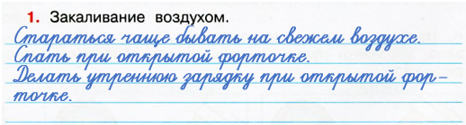 1. Закаливание воздухом.
Стараться чаще бывать на свежем воздухе.
Спать при открытой форточке.
Делать утреннюю зарядку при открытой фор-
точке.